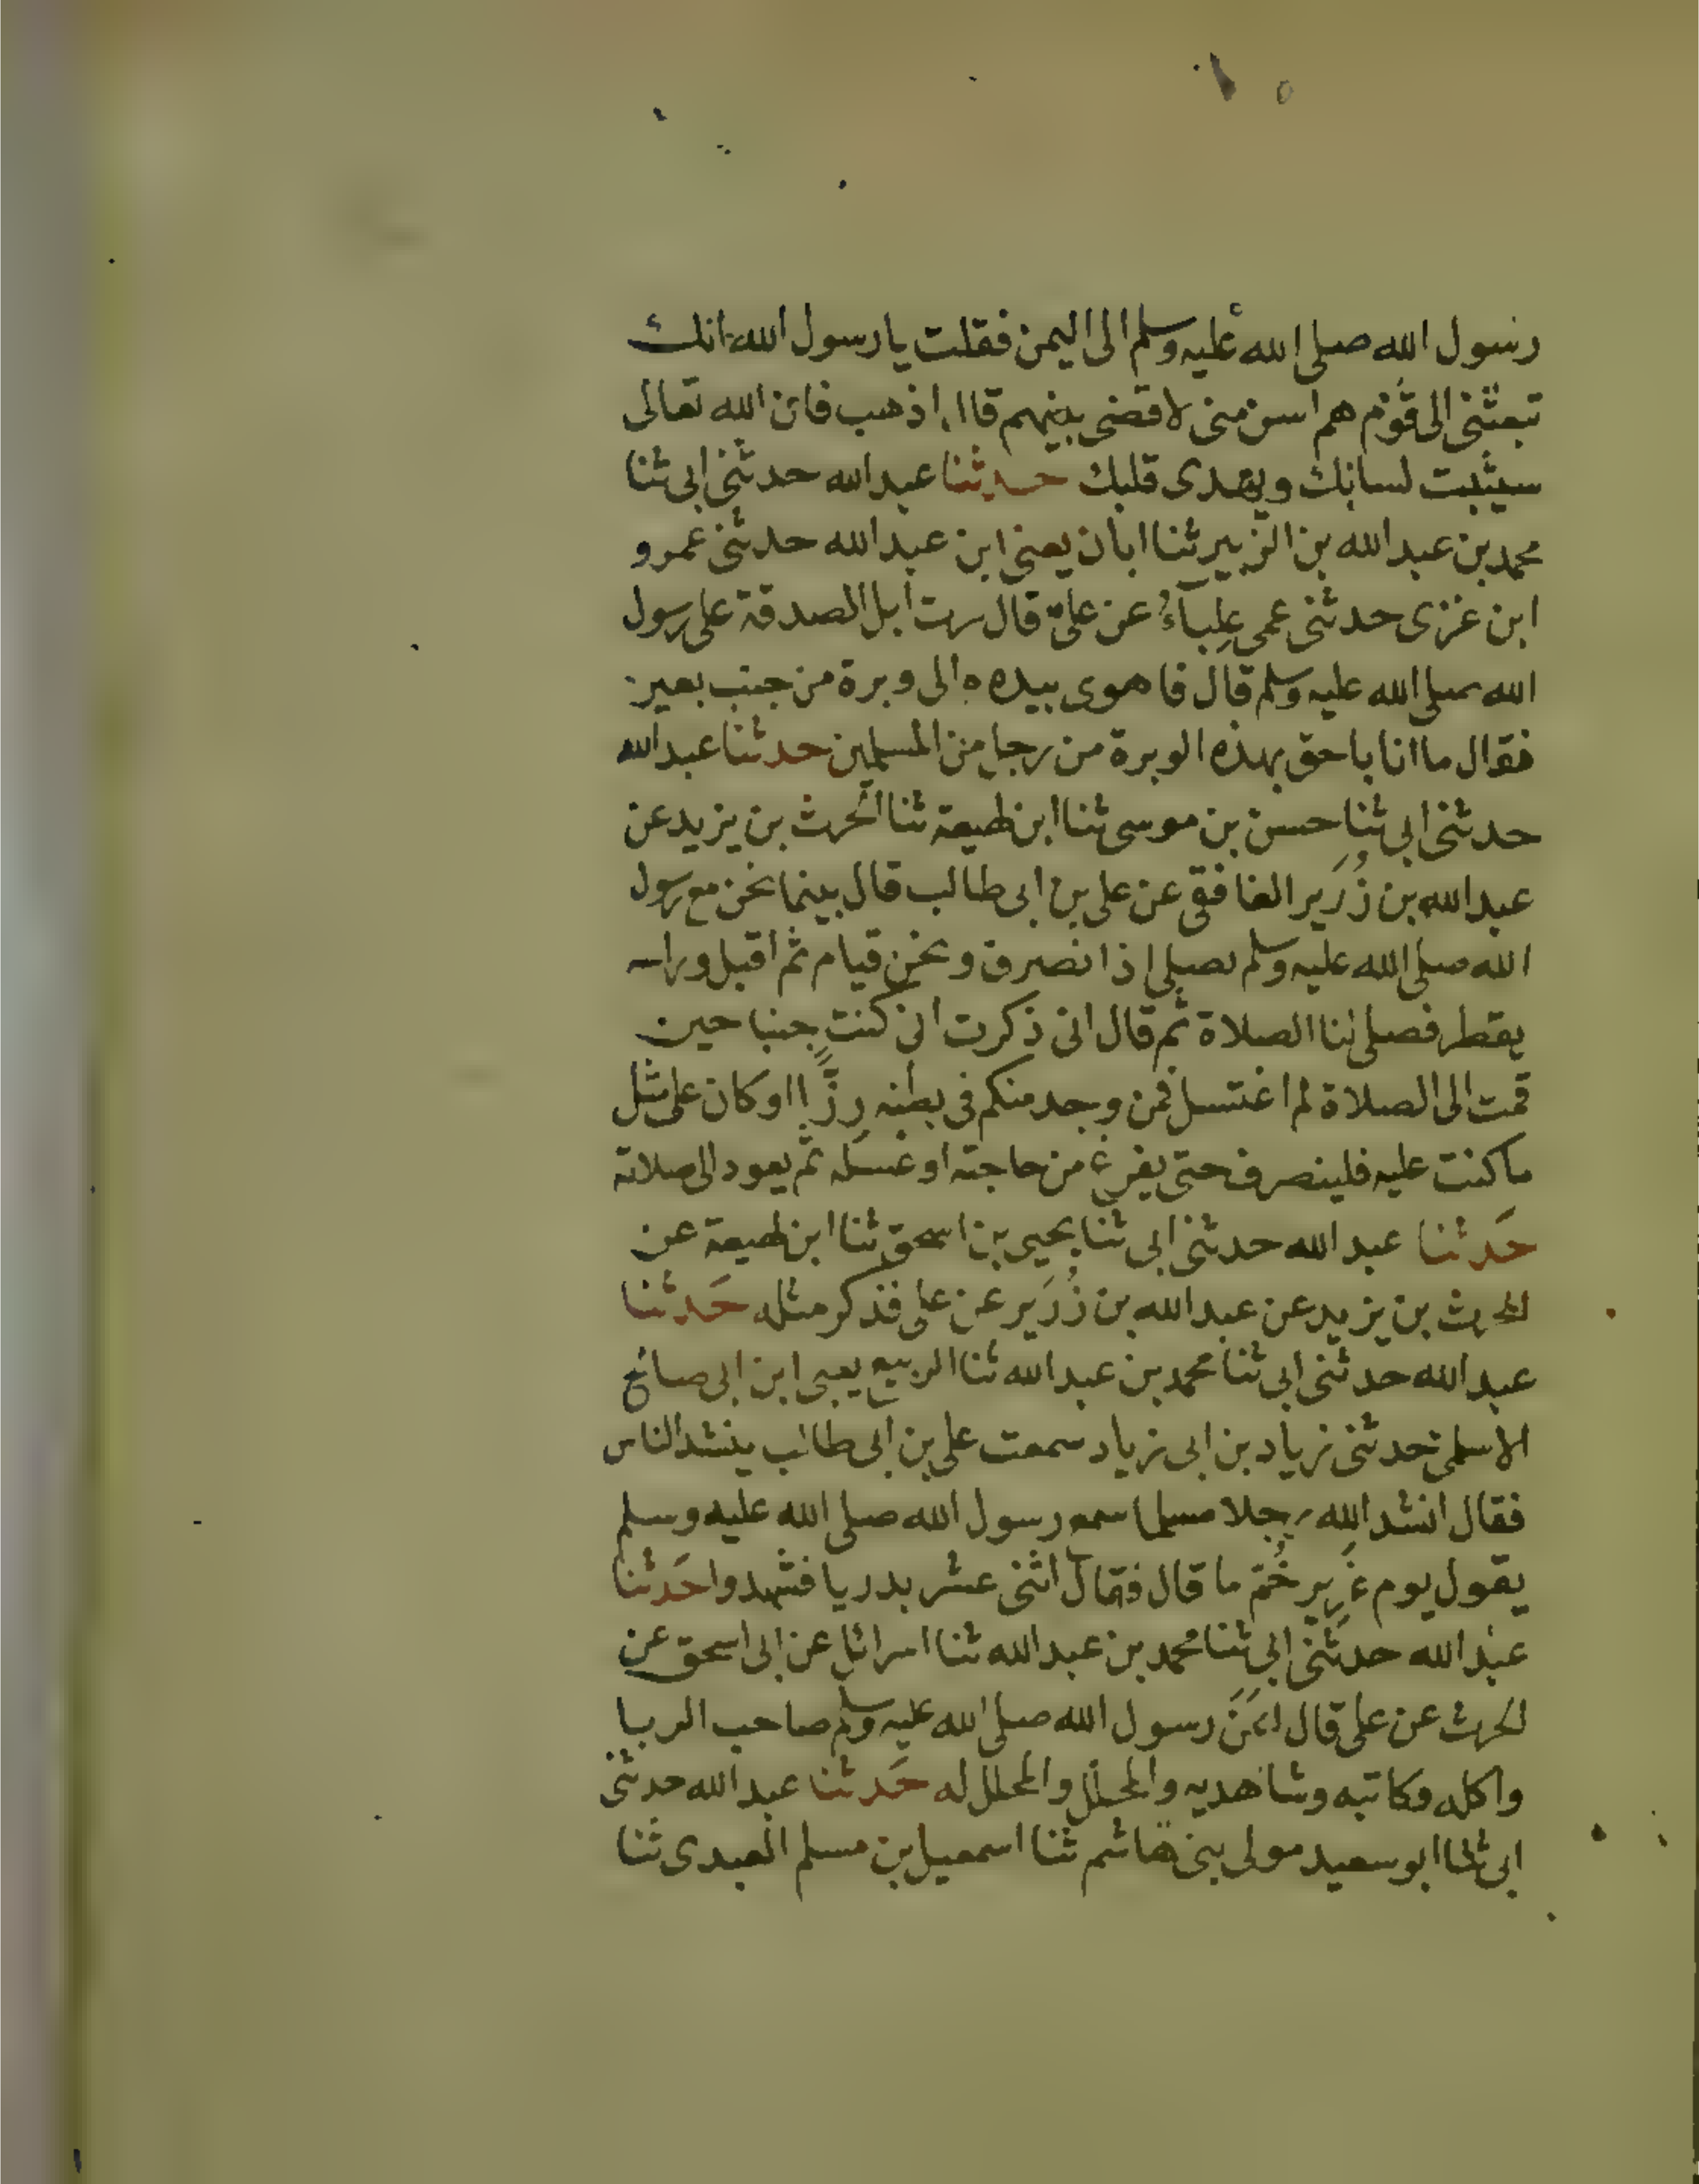 رسول الله صلى الله عليه وسلم الى اليمن فقلت يا رسول الله انك
تبعثنى الى قوم هم اسن منى لاقضى بينهم قال اذهب فان الله تعالى
سيثبت لسانك ويهدى قلبك حدثنا عبد الله حدثنى ابى ثنا
محمد بن عبد الله بن الزبير ثنا ابان يعنى ابن عبد الله حدثنى عمرو
ابن غزى حدثنى عمى علباءُ عن على قال مرت ابل الصدقة على رسول
الله صلى الله عليه وسلم قال فاهوى بيده الى وبرة من جنب بعير
فقال ما انا باحق بهذه الوبرة من رجل من المسلمين حدثنا عبد الله
حدثنى ابى ثنا حسن بن موسى ثنا ابن لهيعة ثنا الحرث بن يزيد عن
عبد الله بن زُرَير الغافقى عن على بن ابى طالب قال بينما نحن مع رسول
الله صلى الله عليه وسلم نصلى اذ انصرف ونحن قيام ثم اقبل وراسه
يقطر فصلى لنا الصلاة ثم قال انى ذكرت انى كنت جنبا حين
قمت الى الصلاة لم اغتسل فمن وجد منكم فى بطنه رِزًّا او كان على مثل
ما كنت عليه فلينصرف حتى يفرغ من حاجته او غسله ثم يعود الى صلاته
حَدثنا عبد الله حدثنى ابى ثنا يحيى بن اسحق ثنا ابن لهيعة عن
الحرث بن يزيد عن عبد الله بن زُرَير عن على فذكر مثله حَدثنا
عبد الله حدثنى ابى ثنا محمد بن عبد الله ثنا الربيع يعنى ابن ابى صالح
الاسلمى حدثنى زياد بن ابى زياد سمعت على بن ابى طالب ينشد الناس
فقال انشد الله رجلا مسلما سمع رسول الله صلى الله عليه وسلم
يقول يوم غدير خُمّ ما قال فقال اثنى عشر بدريا فشهدوا حَدثنا
عبد الله حدثنى ابى ثنا محمد بن عبد الله ثنا اسرائل عن ابى اسحق عن
الحرث عن على قال لعَنَ رسول الله صلى الله عليه وسلم صاحب الربا
واكله وكاتبه وشاهديه والمحلل والمحلل له حَدثنا عبد الله حدثنى
ابى ثنا ابو سعيد مولى بنى هاشم ثنا اسمعيل بن مسلم العبدى ثنا